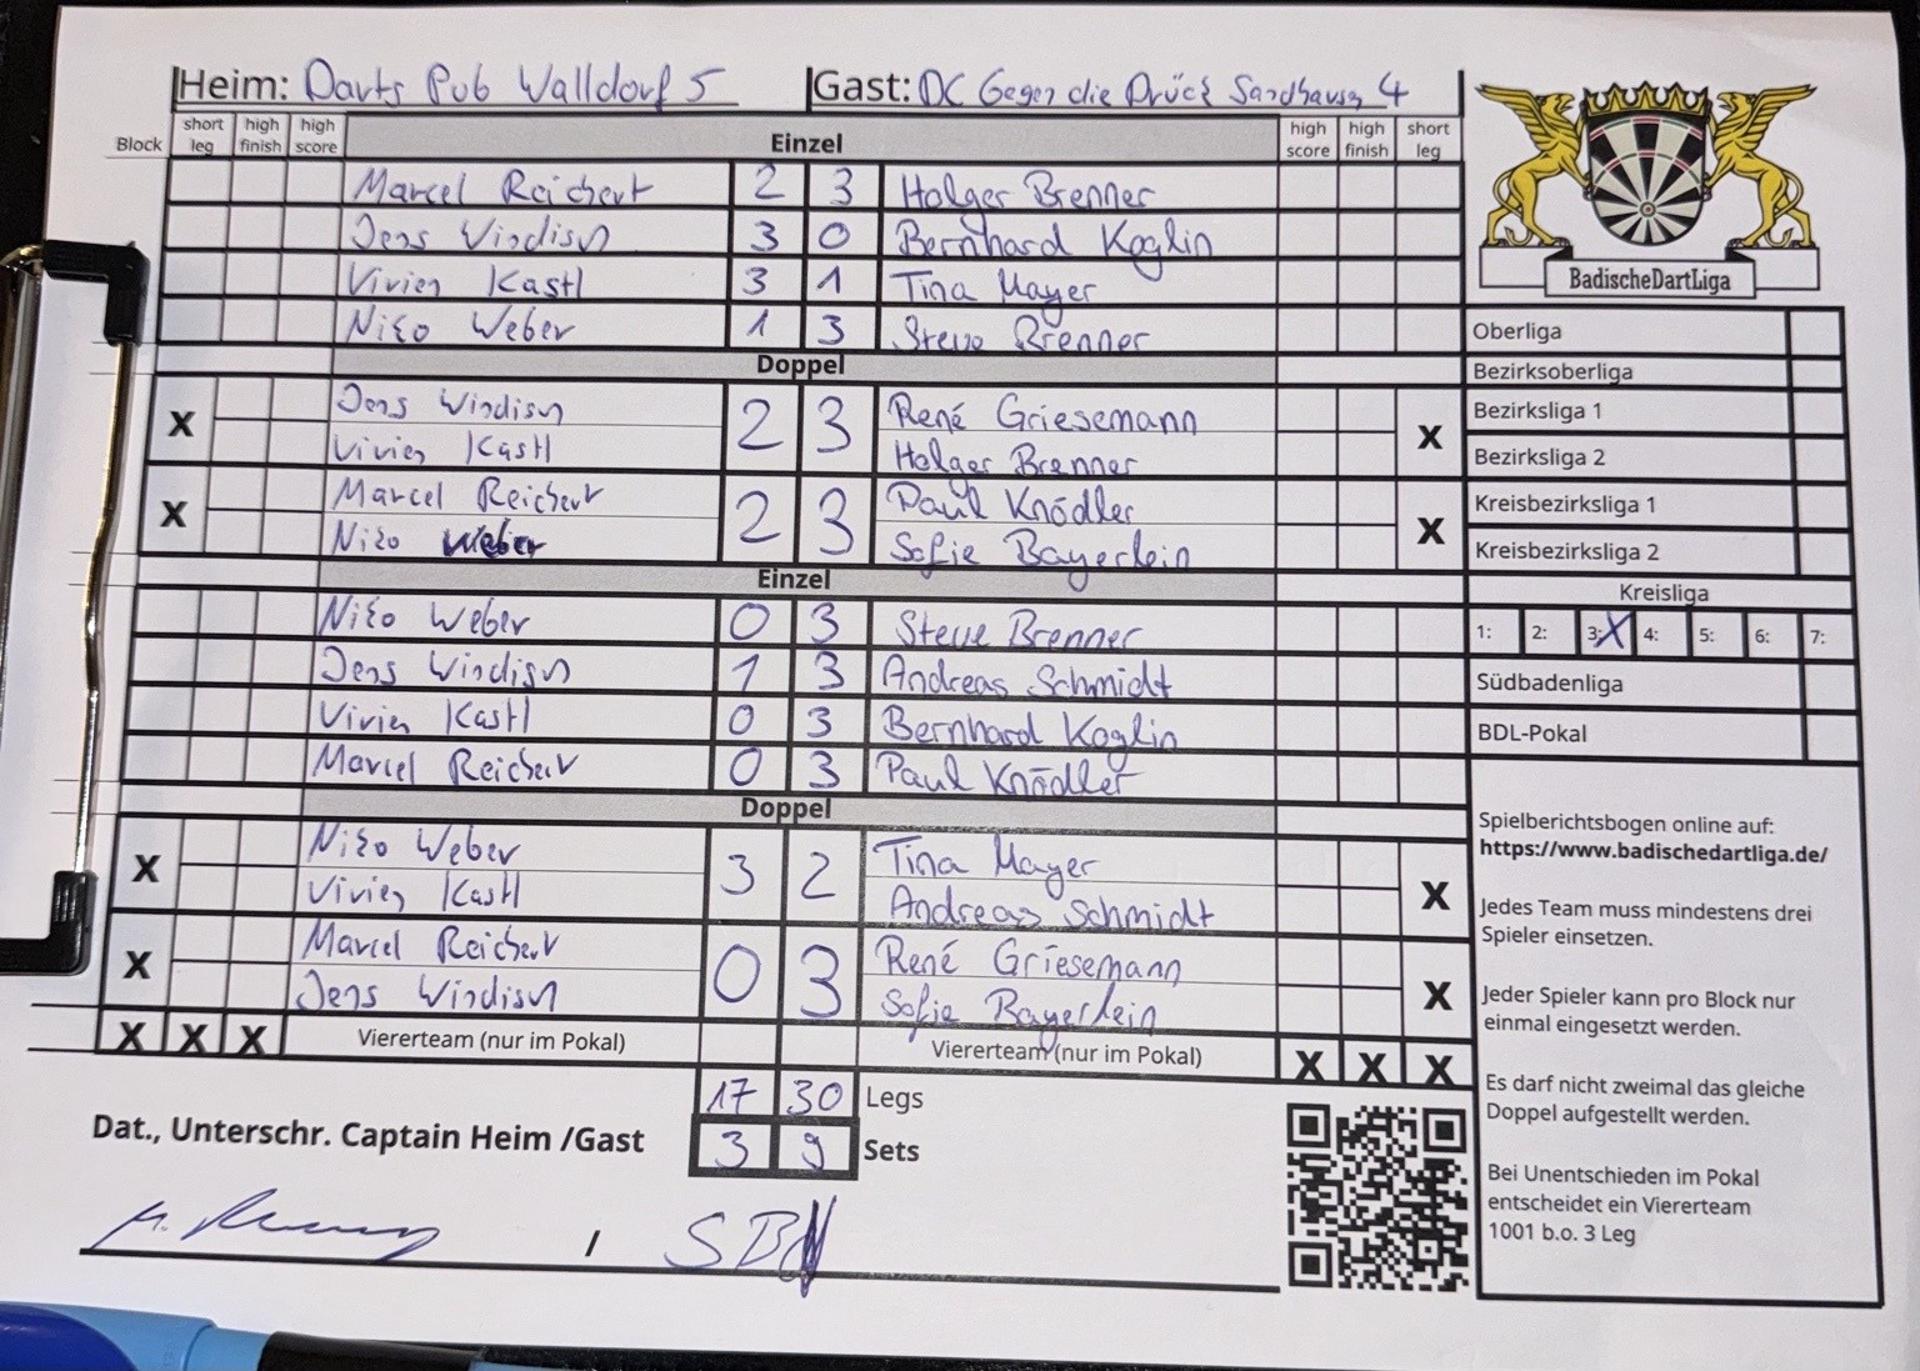 Heim: Darts Pub Walldorf 5 Gast: DC Gegen die Drück Sandhausen 4
Block short leg high finish high score Einzel high score high finish short leg
Marcel Reichert 2 3 Holger Brenner
Jens Windisch 3 0 Bernhard Koglin
Vivien Kastl 3 1 Tina Mayer
Niko Weber 1 3 Steve Brenner
Doppel
X Jens Windisch 2 3 René Griesemann X
Vivien Kastl Holger Brenner
X Marcel Reichert 2 3 Paul Knödler X
Niko Weber Sofie Bayerlein
Einzel
Niko Weber 0 3 Steve Brenner
Jens Windisch 1 3 Andreas Schmidt
Vivien Kastl 0 3 Bernhard Koglin
Marcel Reichert 0 3 Paul Knödler
Doppel
X Niko Weber 3 2 Tina Mayer X
Vivien Kastl Andreas Schmidt
X Marcel Reichert 0 3 René Griesemann X
Jens Windisch Sofie Bayerlein
X X X Viererteam (nur im Pokal) Viererteam (nur im Pokal) X X X
17 30 Legs
3 9 Sets
Dat., Unterschr. Captain Heim /Gast
/
BadischeDartLiga
Oberliga
Bezirksoberliga
Bezirksliga 1
Bezirksliga 2
Kreisbezirksliga 1
Kreisbezirksliga 2
Kreisliga
1: 2: 3: X 4: 5: 6: 7:
Südbadenliga
BDL-Pokal
Spielberichtsbogen online auf:
https://www.badischedartliga.de/
Jedes Team muss mindestens drei
Spieler einsetzen.
Jeder Spieler kann pro Block nur
einmal eingesetzt werden.
Es darf nicht zweimal das gleiche
Doppel aufgestellt werden.
Bei Unentschieden im Pokal
entscheidet ein Viererteam
1001 b.o. 3 Leg